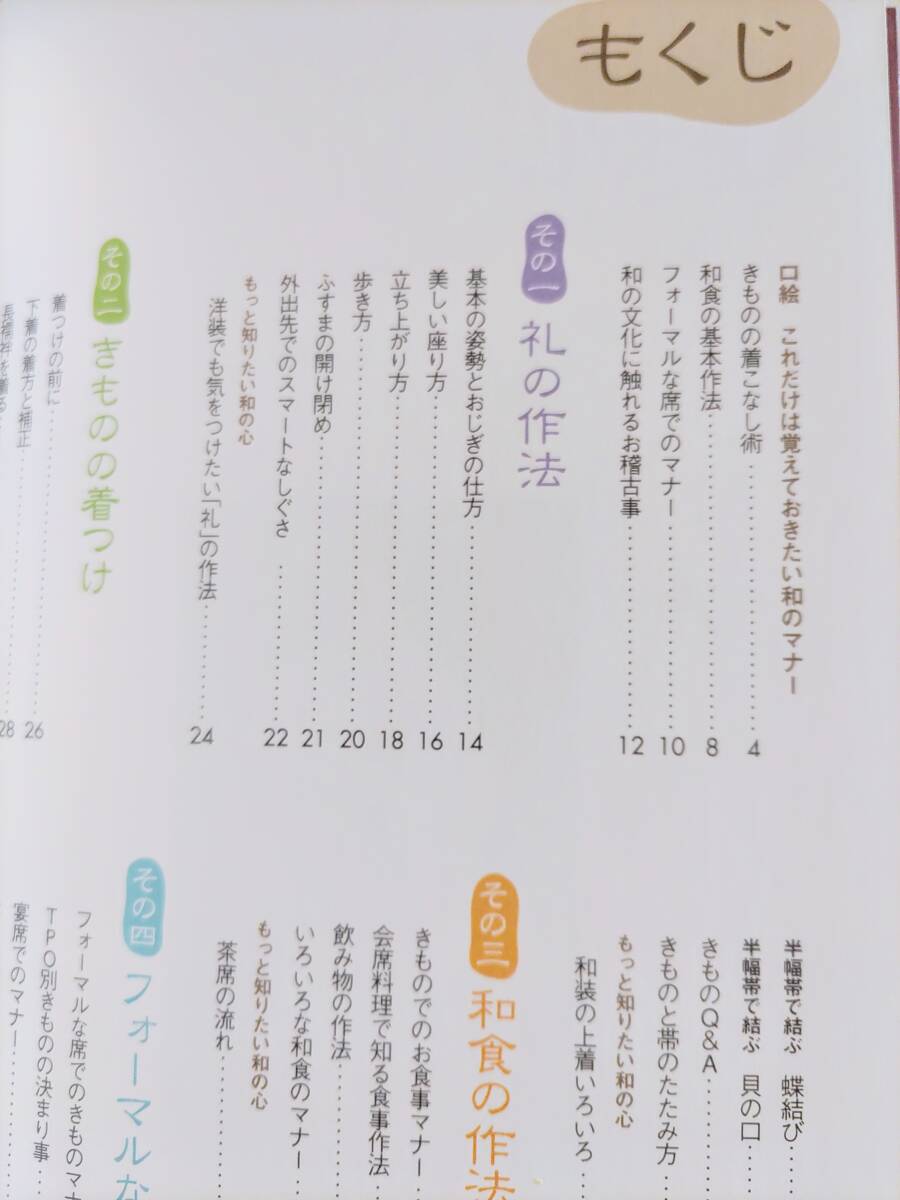 もくじ
口絵 これだけは覚えておきたい和のマナー
きものの着こなし術 4
和食の基本作法 8
フォーマルな席でのマナー 10
和の文化に触れるお稽古事 12
その一 礼の作法
基本の姿勢とおじぎの仕方 14
美しい座り方 16
立ち上がり方 18
歩き方 20
ふすまの開け閉め 21
外出先でのスマートなしぐさ 22
もっと知りたい和の心
洋装でも気をつけたい「礼」の作法 24
その二 きものの着つけ
着つけの前に 26
下着の着方と補正 28
半幅帯で結ぶ 蝶結び
半幅帯で結ぶ 貝の口
きものQ&A
きものと帯のたたみ方
もっと知りたい和の心
和装の上着いろいろ
その三 和食の作法
きものでのお食事マナー
会席料理で知る食事作法
飲み物の作法
いろいろな和食のマナー
もっと知りたい和の心
茶席の流れ
その四 フォーマルな
フォーマルな席でのきものマナ
TPO別きものの決まり事
宴席でのマナー